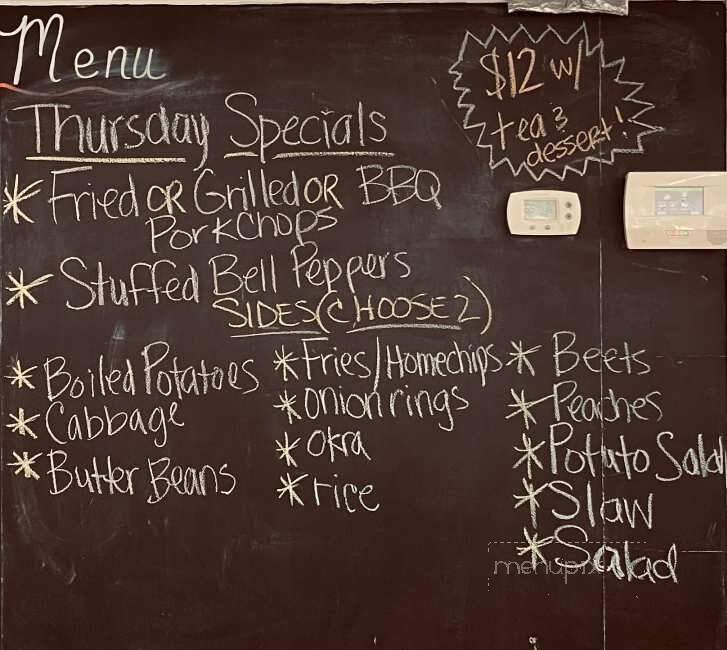 Menu
$12 w/
tea &
dessert!
Thursday Specials
* Fried OR Grilled OR BBQ
Porkchops
* Stuffed Bell Peppers
SIDES (CHOOSE 2)
* Boiled Potatoes
* Cabbage
* Butter Beans
* Fries/Homechips
* Onion rings
* Okra
* rice
* Beets
* Peaches
* Potato Salad
* Slaw
* Salad
menupix